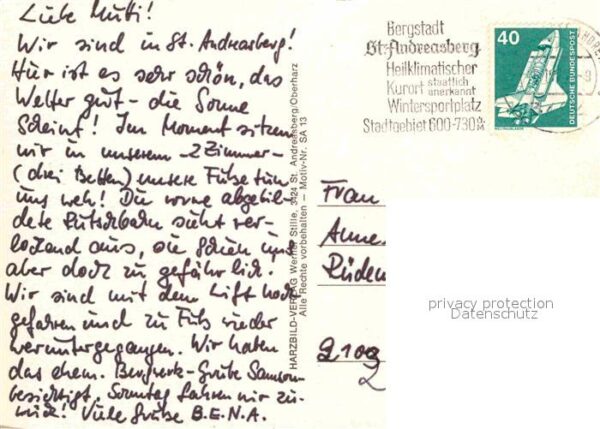 Liebe Mutti!
Wir sind in St. Andreasberg!
Hier ist es sehr schön, das
Wetter gut - die Sonne
scheint! Im Moment sitzen
wir in unserem - 2 Zimmer -
(drei Betten) unsere Füße tun
uns weh! Die vorne abgebil-
dete Rutschbahn sieht ver-
lockend aus, sie schien uns
aber doch zu gefährlich.
Wir sind mit dem Lift hoch
gefahren und zu Fuß wieder
heruntergegangen. Wir haben
das ehem. Bergwerk - Grube Samson
besichtigt. Sonntag fahren wir zu-
rück! Viele Grüße B.E.N.A.
HARZBILD-VERLAG Werner Stille, 3424 St. Andreasberg/Oberharz
Alle Rechte vorbehalten — Motiv-Nr. SA 13
Bergstadt
St. Andreasberg
Heilklimatischer
Kurort staatlich anerkannt
Wintersportplatz
Stadtgebiet 600-730 ü. M
40
DEUTSCHE BUNDESPOST
Frau
Anne
Rüden
2100
2
privacy protection
Datenschutz